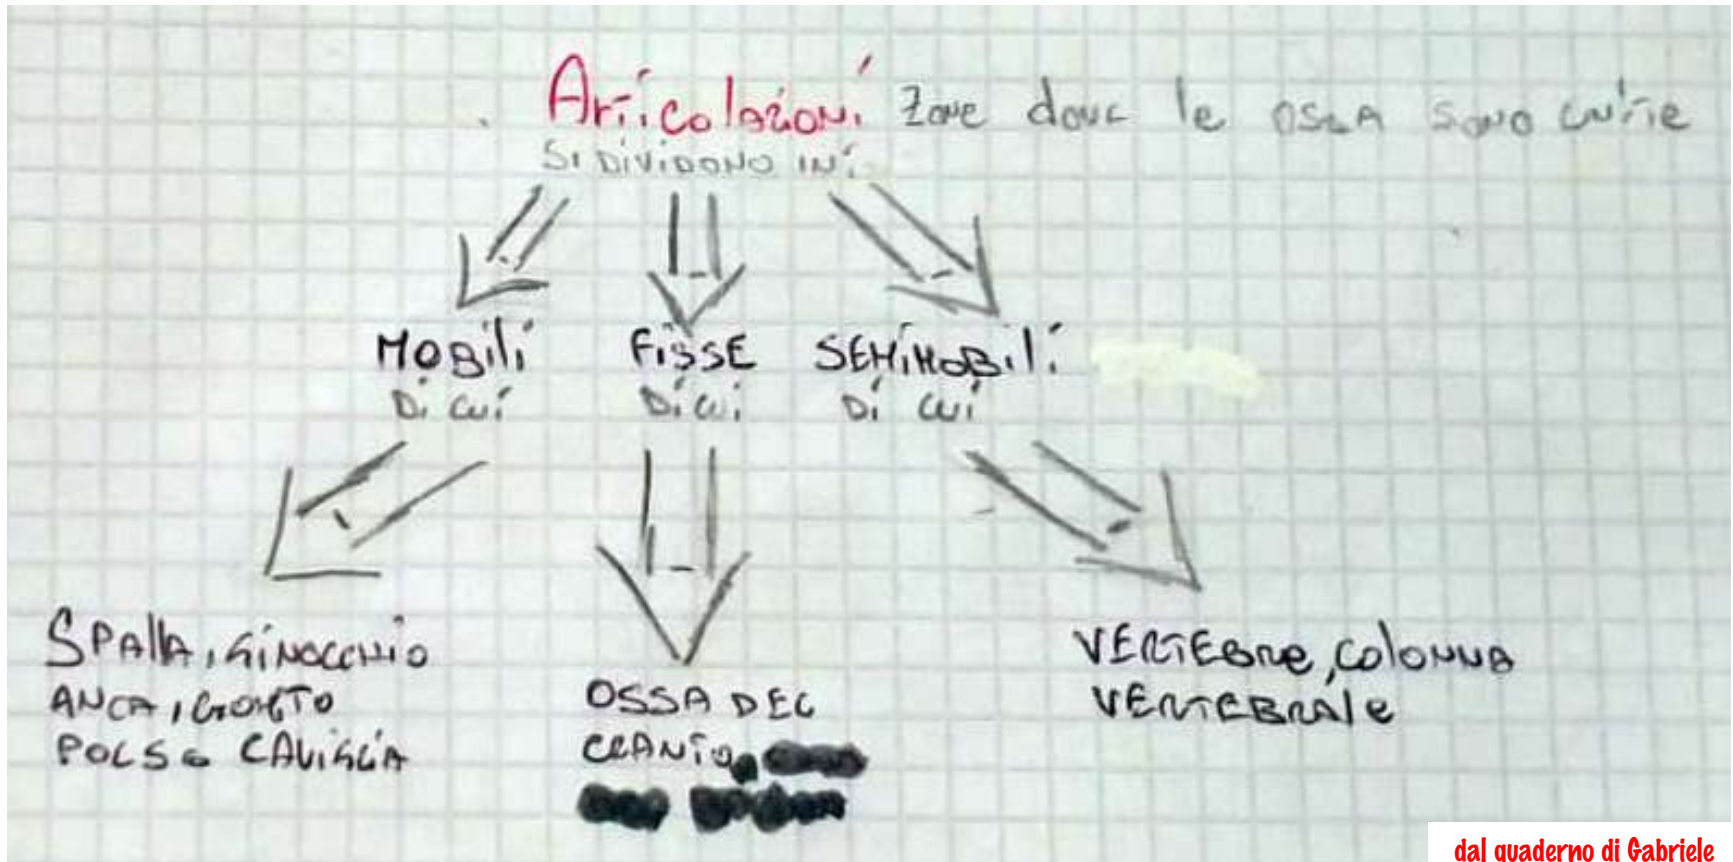 Articolazioni zone dove le OSSA sono unite
SI DIVIDONO IN:
MOBili FiSSE SEMiMOBili
Di cui Di cui Di cui
SPAllA, GiNOCCHiO
ANCA, GOMiTO
POLSO CAViGLiA
OSSA DEL
CRANiO
VERTEBRE, COlONNA
VERTEBRAle
dal quaderno di Gabriele